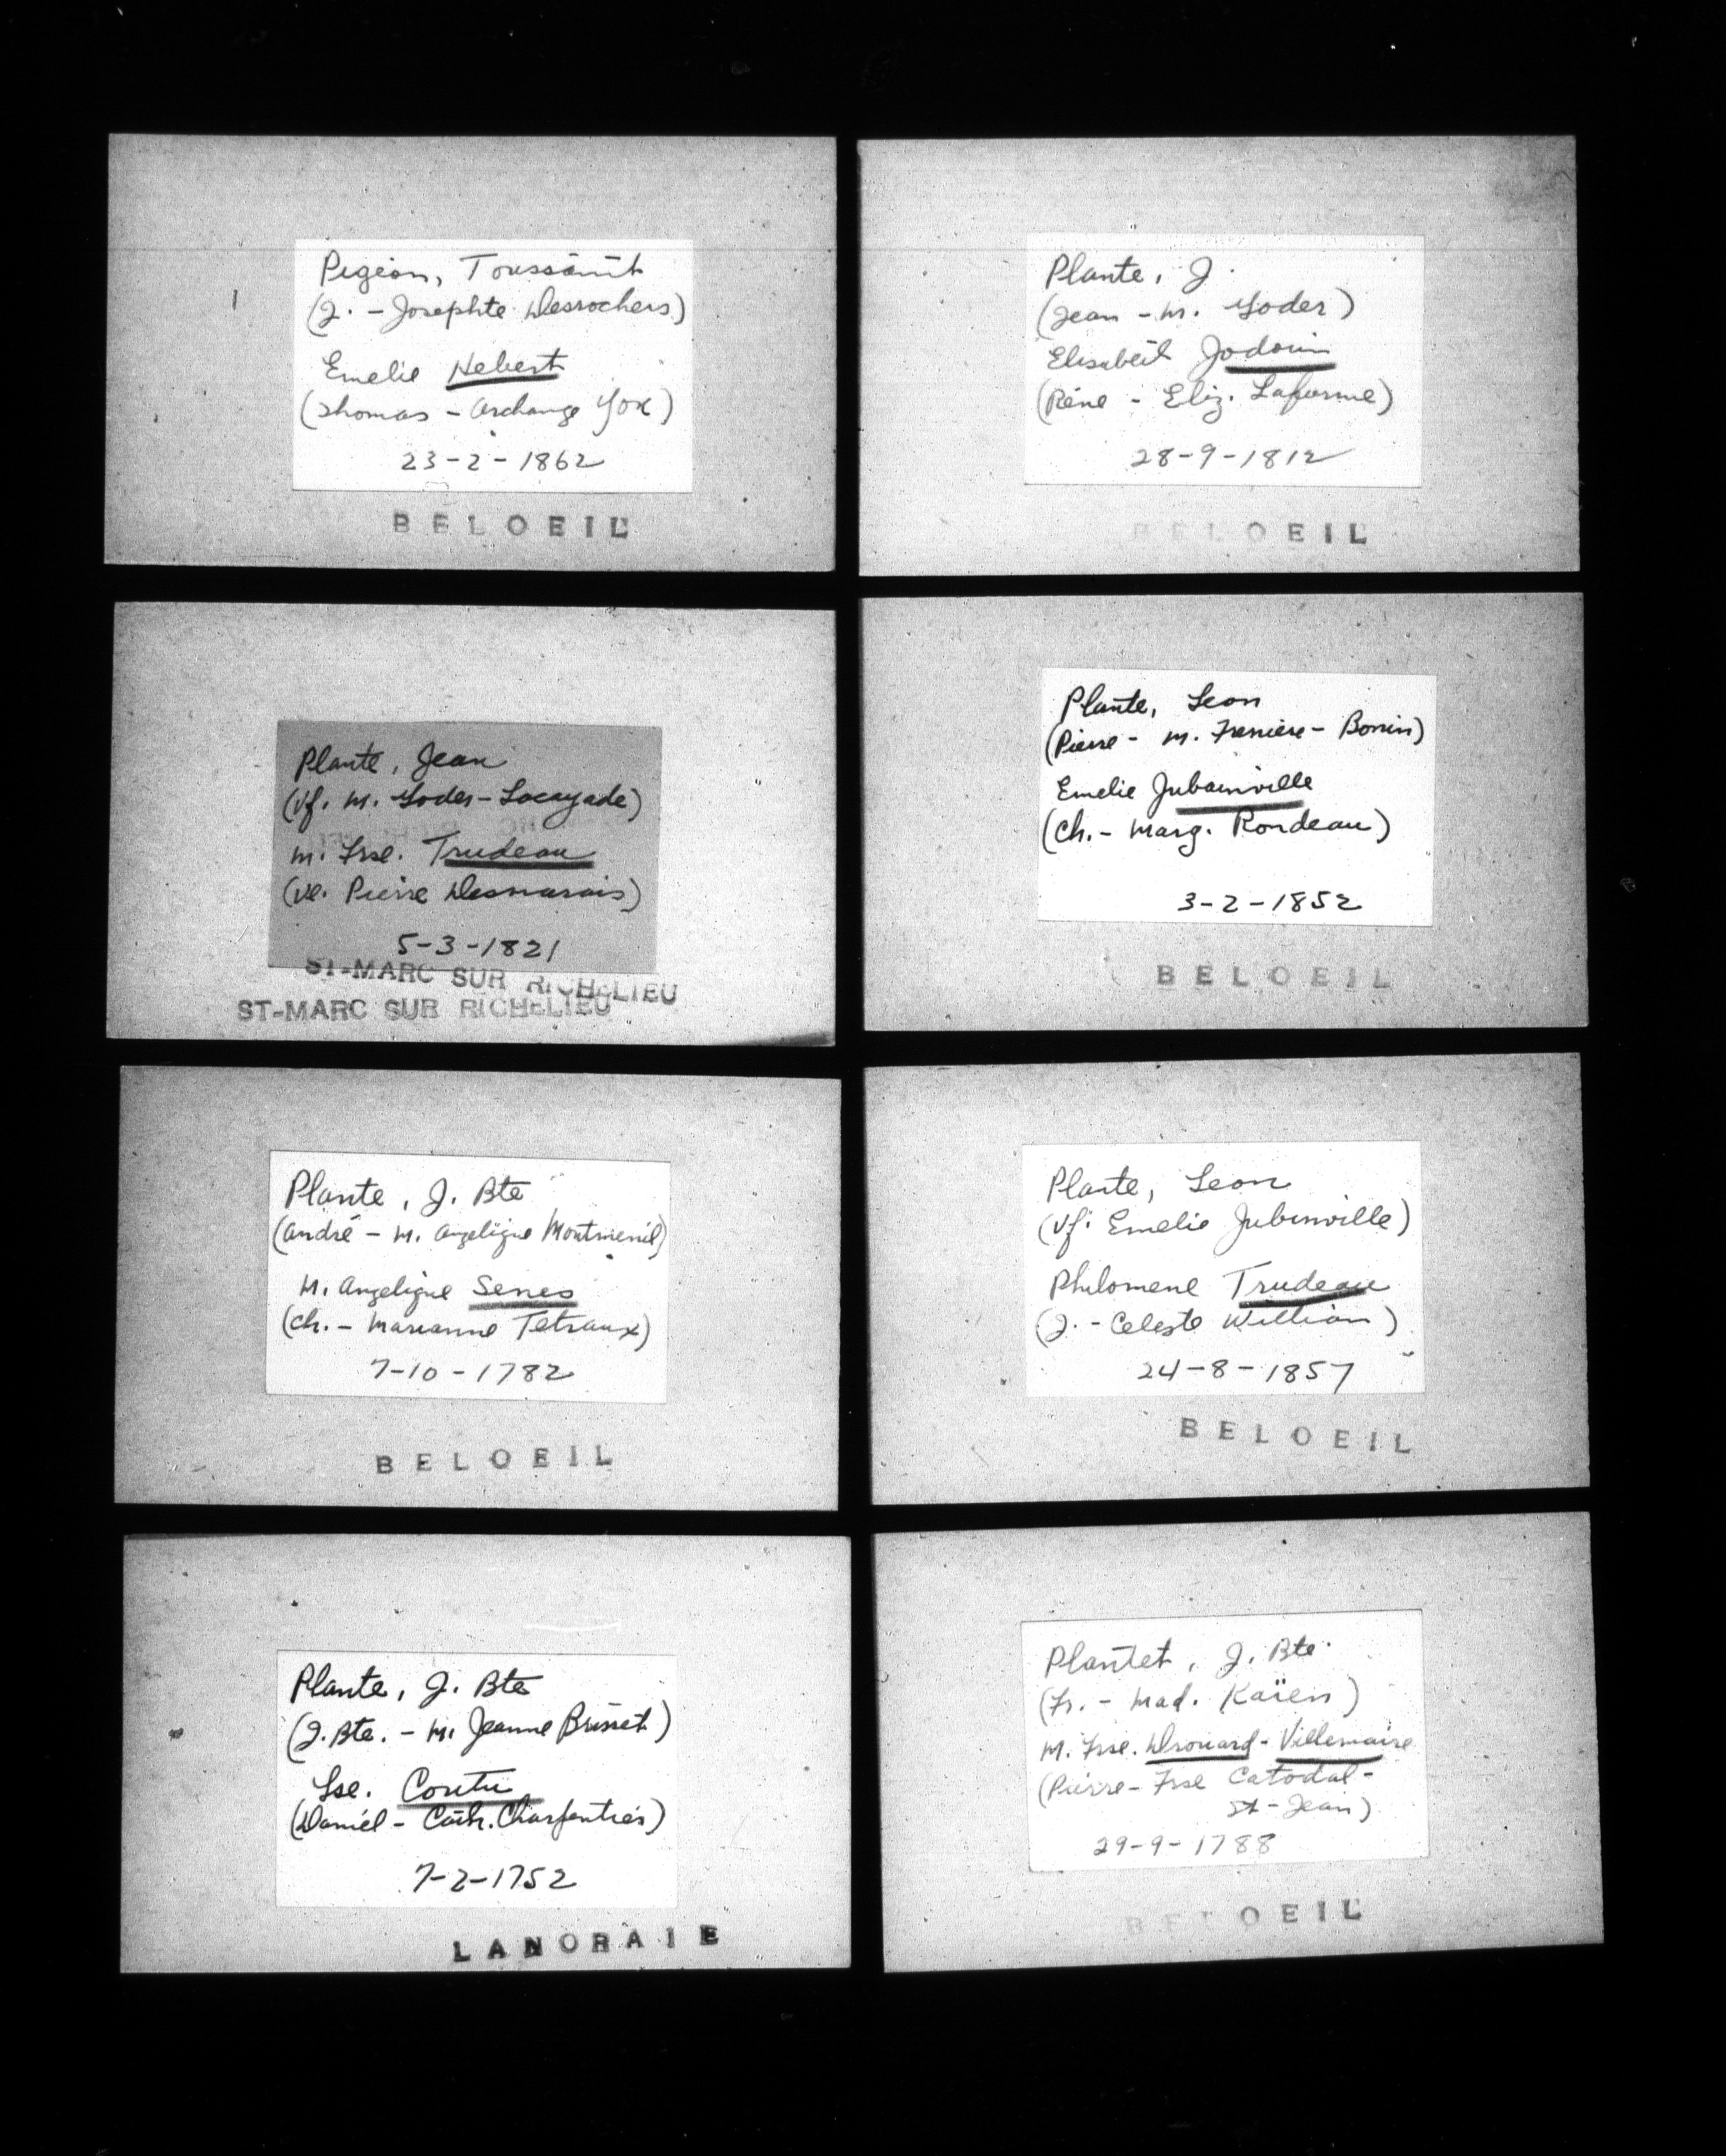 Pigeon, Toussaint
(J. - Josephte Desrochers)
Emelie Hebert
(Thomas - Archange Yox)
23-2-1862
BELOEIL
Plante, J.
(Jean - M. Yoder)
Elisabeth Jodoin
(Réne - Eliz. Laforme)
28-9-1812
BELOEIL
Plante, Jean
(Vf. M. Yoder-Locayade)
M. Frse. Trudeau
(Ve. Pierre Desmarais)
5-3-1821
ST-MARC SUR RICHELIEU
ST-MARC SUR RICHELIEU
Plante, Leon
(Pierre - M. Freniere - Bonin)
Emelie Jubainville
(Ch. - Marg. Rondeau)
3-2-1852
BELOEIL
Plante, J. Bte
(André - M. Angelique Montmenil)
M. Angelique Senes
(Ch. - Marianne Tetraux)
7-10-1782
BELOEIL
Plante, Leon
(Vf. Emelie Jubinville)
Philomene Trudeau
(J. - Celeste William)
24-8-1857
BELOEIL
Plante, J. Bte
(J. Bte. - M. Jeanne Brisset)
Lse. Coutu
(Daniel - Cath. Charpentier)
7-2-1752
LANORAIE
Plantet, J. Bte
(Fr. - Mad. Kaïen)
M. Frse. Drouard-Villemaire
(Pierre - Frse Catodal-
St-Jean)
29-9-1788
BELOEIL